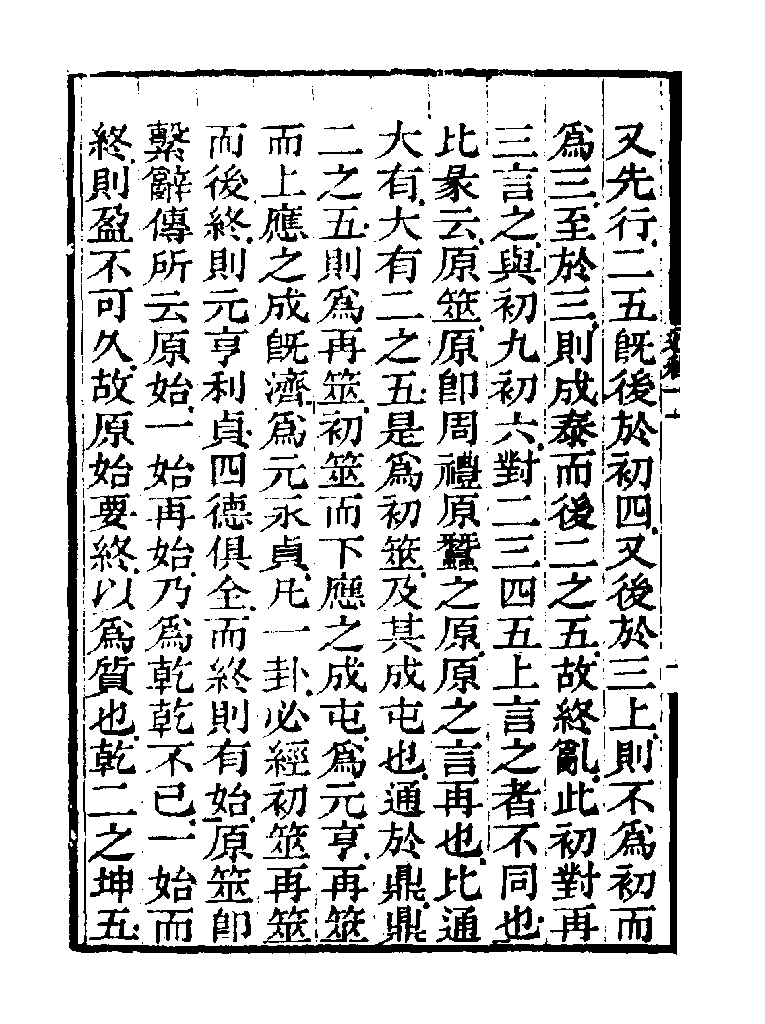 又先行二五旣後於初四又後於三上則不爲初而
爲三至於三則成泰而後二之五故終亂此初對再
三言之與初九初六對二三四五上言之者不同也
比彖云原筮原卽周禮原蠶之原原之言再也比通
大有大有二之五是爲初筮及其成屯也通於鼎鼎
二之五則爲再筮初筮而下應之成屯爲元亨再筮
而上應之成旣濟爲元永貞凡一卦必經初筮再筮
而後終則元亨利貞四德俱全而終則有始原筮卽
繫辭傳所云原始一始再始乃爲乾乾不已一始而
終則盈不可久故原始要終以爲質也乾二之坤五